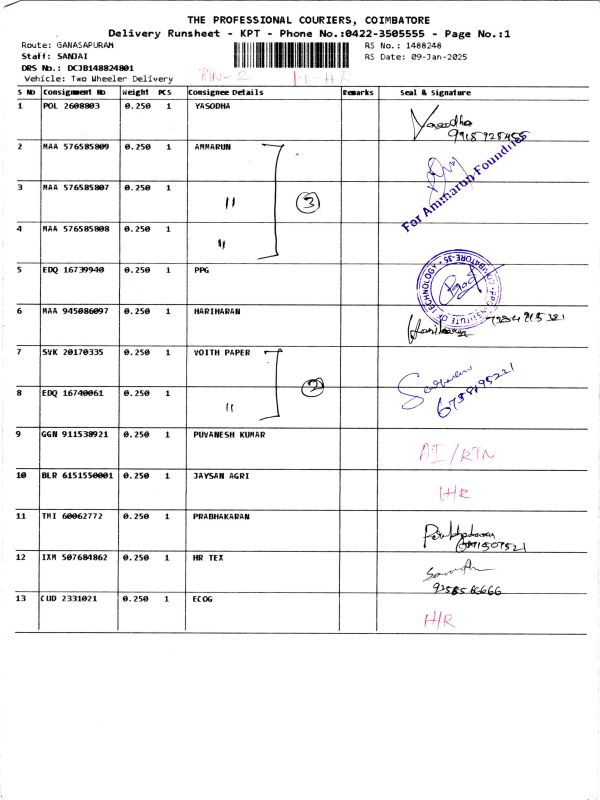 THE PROFESSIONAL COURIERS, COIMBATORE
Delivery Runsheet - KPT - Phone No.:0422-3505555 - Page No.:1
Route: GANASAPURAM RS No.: 1488248
Staff: SANJAI RS Date: 09-Jan-2025
DRS No.: DCJB148824801
Vehicle: Two Wheeler Delivery RTN-2
S No Consignment No Weight PCS Consignee Details Remarks Seal & Signature
1 POL 2608803 0.250 1 YASODHA Yasodha
2 MAA 576585809 0.250 1 AMMARUN
For Ammarun Foundries
3 MAA 576585807 0.250 1 " 3
4 MAA 576585808 0.250 1 "
5 EDQ 16739940 0.250 1 PPG
6 MAA 945086097 0.250 1 HARIHARAN
7 SVK 20170335 0.250 1 VOITH PAPER
8 EDQ 16740061 0.250 1 " 2
9 GGN 911538921 0.250 1 PUVANESH KUMAR AI/RTN
10 BLR 6151550001 0.250 1 JAYSAN AGRI H/R
11 TMI 60062772 0.250 1 PRABHAKARAN
12 IXM 507684862 0.250 1 HR TEX
13 CUD 2331021 0.250 1 ECOG H/R